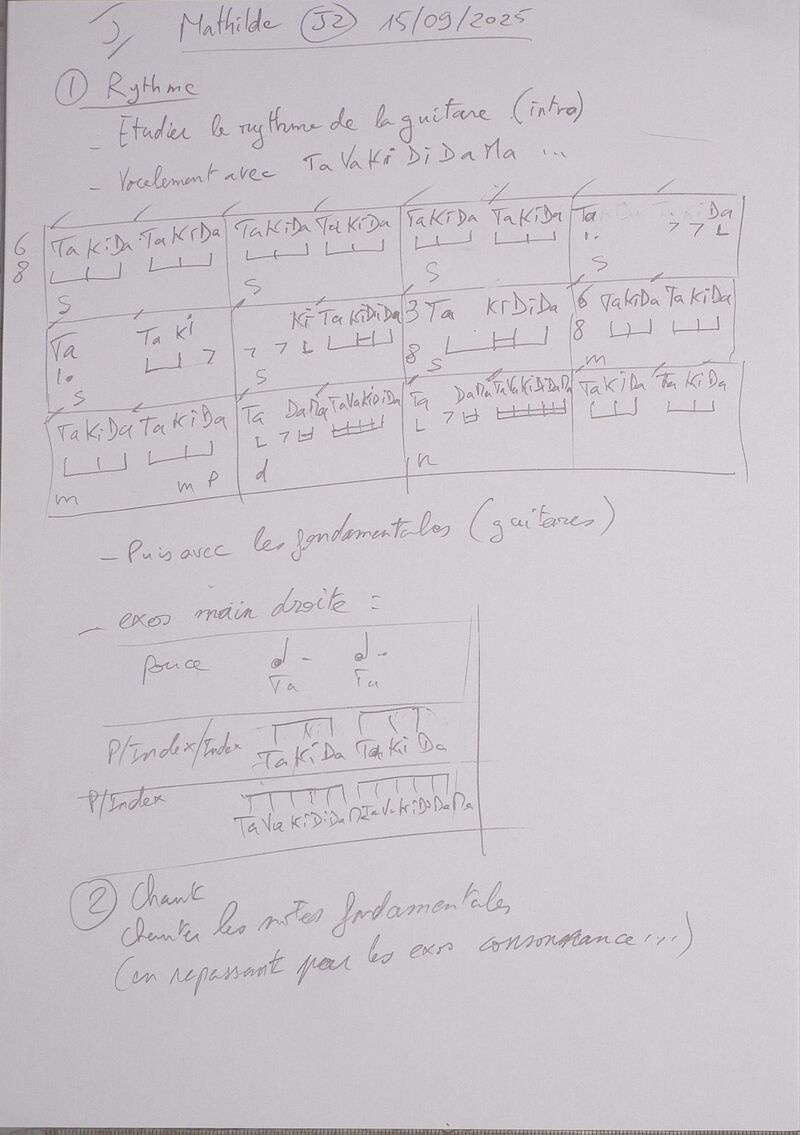 Mathilde J2 15/09/2025
1 Rythme
- Etudier le rythme de la guitare (intro)
- Vocalement avec TaVaKiDiDaMa ...
6 8 TaKiDa TaKiDa TaKiDa TaKiDa TaKiDa TaKiDa Ta Da
S S S S
Ta Ta Ki Ki TaKiDiDa 3 8 Ta KiDiDa 6 8 TaKiDa TaKiDa
S S S m
TaKiDa TaKiDa Ta DaMa TaVaKiDiDa Ta DaMa TaVaKiDiDaMa TaKiDa TaKiDa
m m p d n
- Puis avec les fondamentales (guitares)
- exos main droite :
pouce Ta Ta
P/Index/Index TaKiDa TaKiDa
P/Index TaVaKiDiDaMa TaVaKiDiDaMa
2 Chant
Chanter les notes fondamentales
(en repassant par les exos consonnance...)